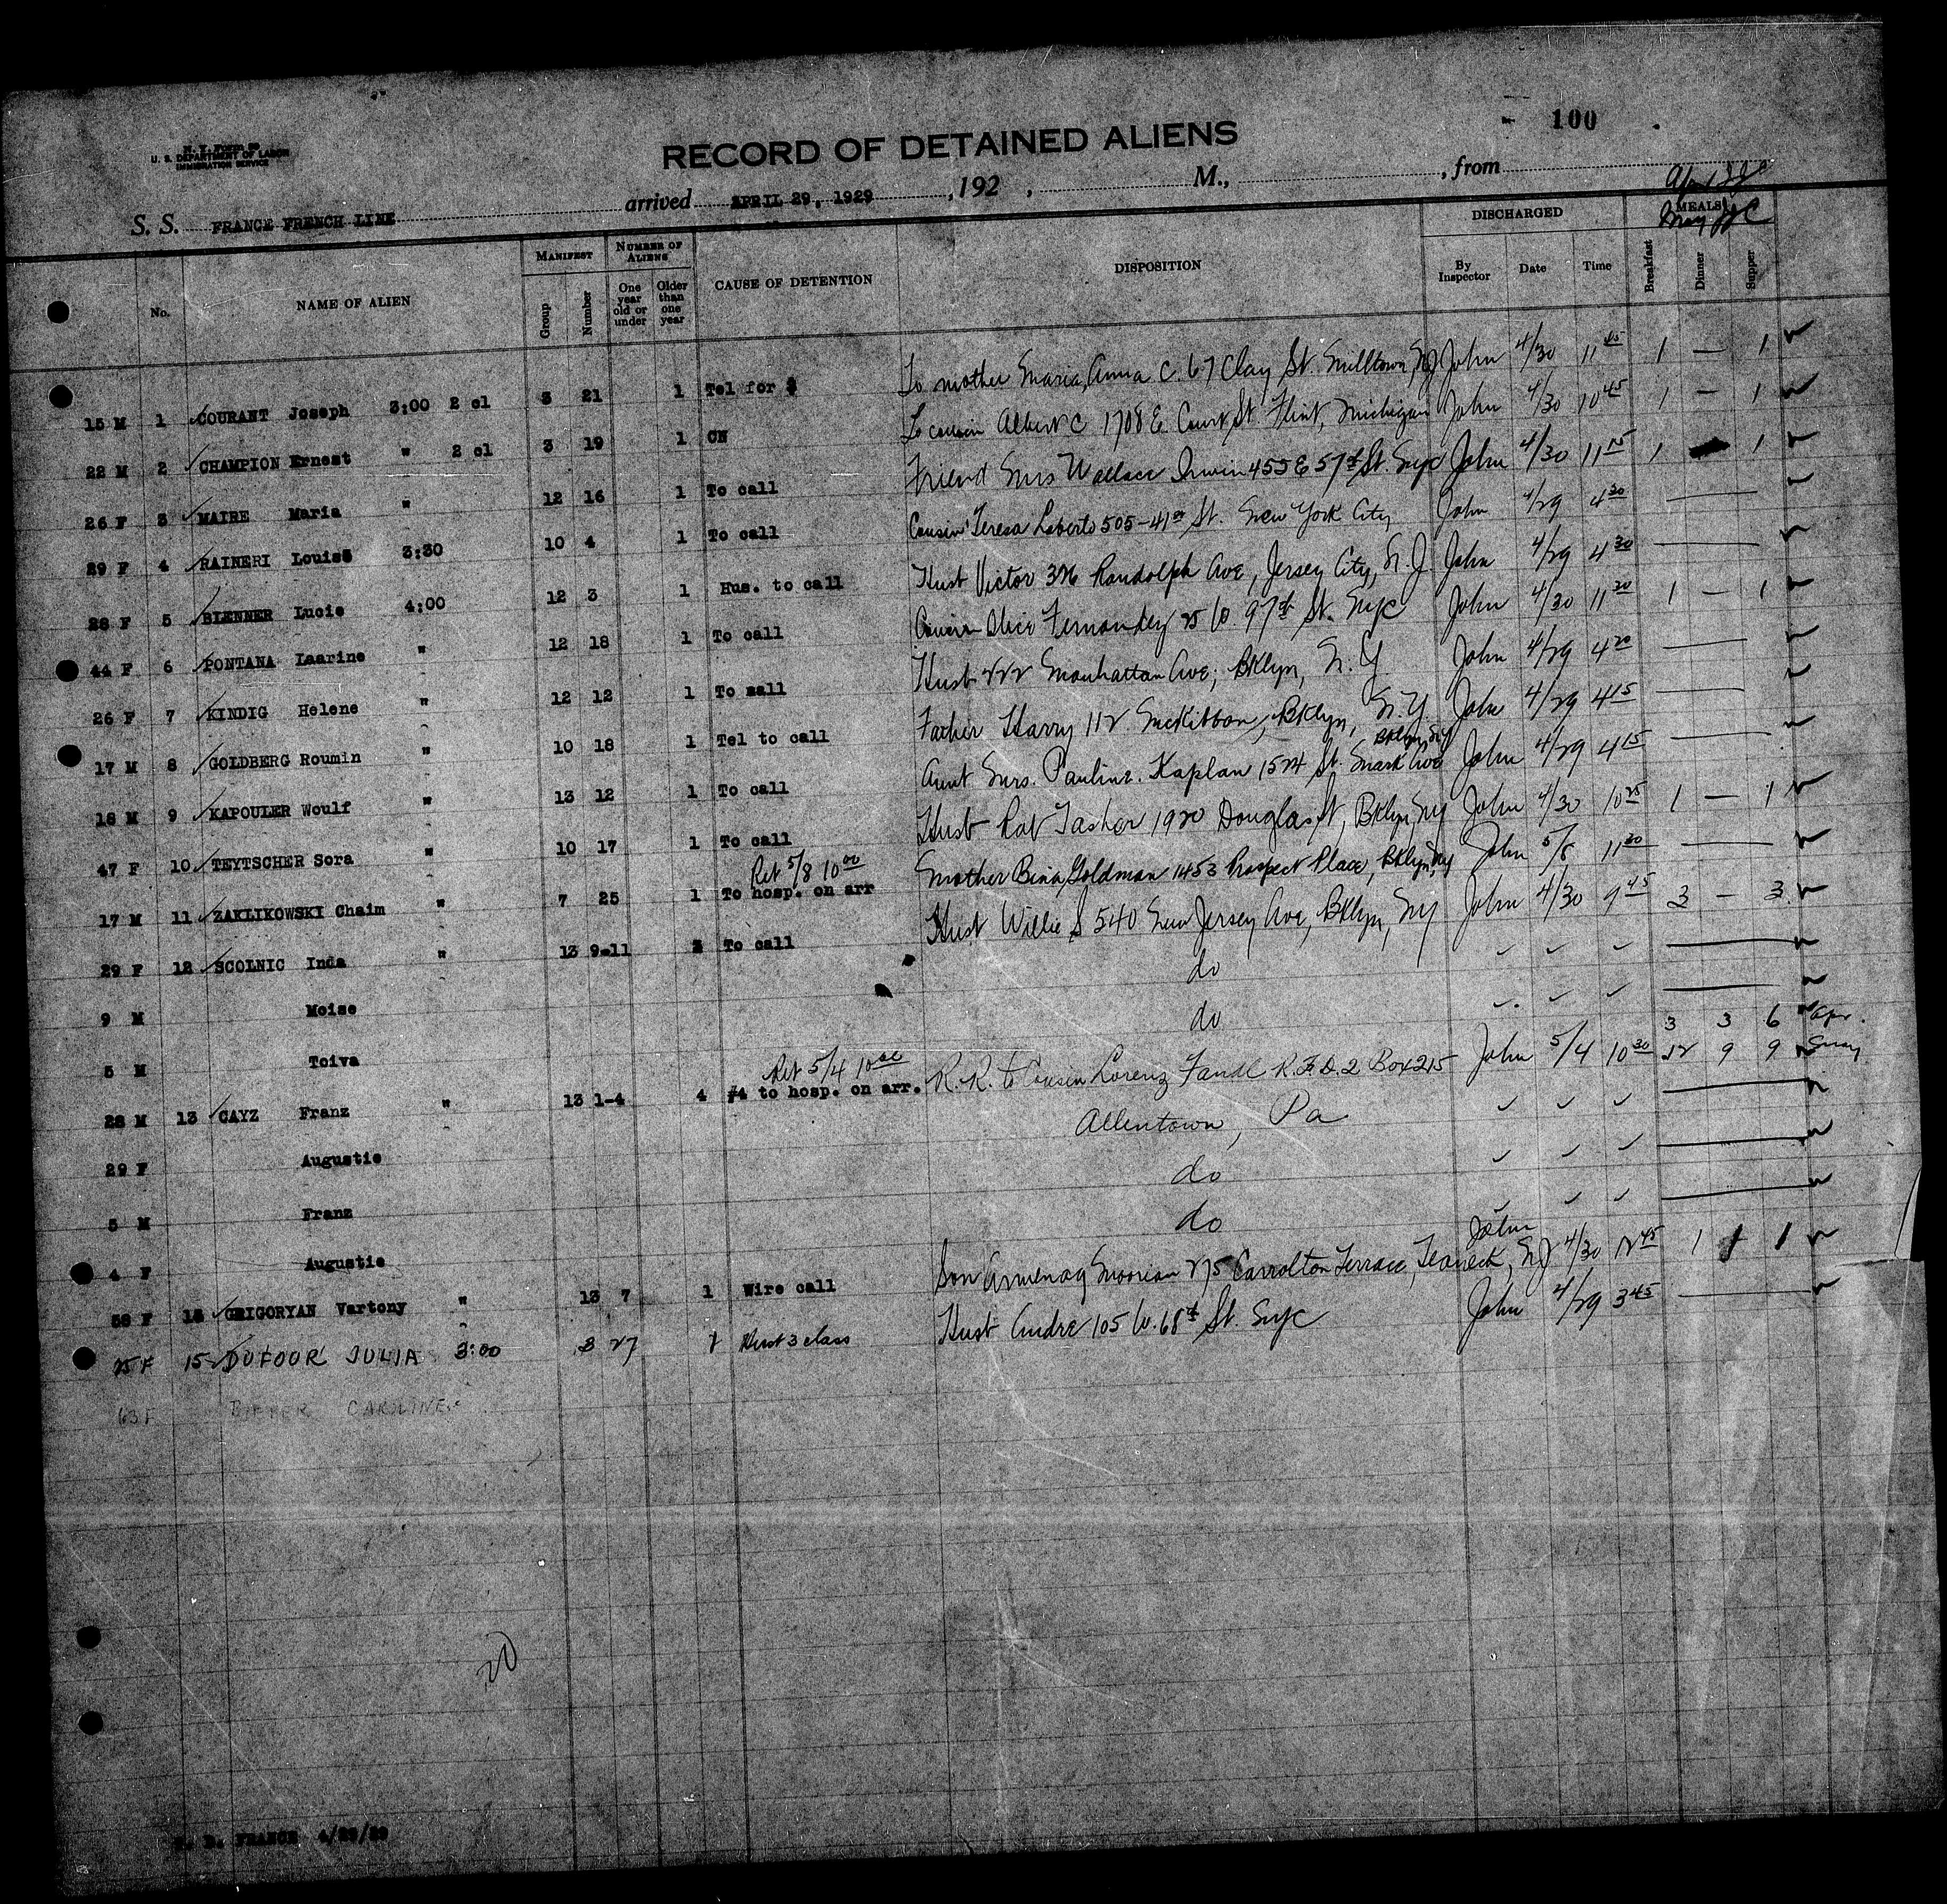 100
N. Y. Form 99
U. S. DEPARTMENT OF LABOR
IMMIGRATION SERVICE
RECORD OF DETAINED ALIENS
S. S. FRANCE FRENCH LINE arrived APRIL 29, 1929 , 192 , M., , from
No. NAME OF ALIEN MANIFEST Group Number NUMBER OF ALIENS One year old or under Older than one year CAUSE OF DETENTION DISPOSITION DISCHARGED By Inspector Date Time MEALS Breakfast Dinner Supper
15 M 1 COURANT Joseph 3:00 2 cl 3 21 1 Tel for $ To mother Maria Anna C. 67 Clay St. Milltown NJ John 4/30 11 45 1 — 1
22 M 2 CHAMPION Ernest " 2 cl 3 19 1 CN To cousin Albert C 1708 E. Court St. Flint, Michigan John 4/30 10 45 1 — 1
26 F 3 MAIRE Maria " 12 16 1 To call Friend Mrs Wallace Irwin 455 E 57th St. NYC John 4/30 11 15 1 1
29 F 4 RAINERI Louise 3:30 10 4 1 To call Cousin Teresa Loberto 505-41st St. New York City John 4/29 4 30
28 F 5 BLENNER Lucie 4:00 12 3 1 Hus. to call Hust Victor 326 Randolph Ave, Jersey City, N.J. John 4/29 4 30
44 F 6 PONTANA Laarine " 12 18 1 To call Cousin Alice Fernandez 25 W. 97th St. NYC John 4/30 11 30 1 — 1
26 F 7 KINDIG Helene " 12 12 1 To call Hust 222 Manhattan Ave; Bklyn, N.Y John 4/29 4 20
17 M 8 GOLDBERG Roumin " 10 18 1 Tel to call Father Harry 112 McKibbon, Bklyn, N.Y John 4/29 4 15
18 M 9 KAPOULER Woulf " 13 12 1 To call Aunt Mrs. Pauline Kaplan 1524 St. Mark Ave Bklyn NY John 4/29 4 15
47 F 10 TEYTSCHER Sora " 10 17 1 To call Hust Rab Tasher 1920 Douglas St, Bklyn, NY John 4/30 10 25 1 — 1
17 M 11 ZAKLIKOWSKI Chaim " 7 25 1 Ret 5/8 10 00 To hosp. on arr Mother Bina Goldman 1453 Prospect Place, Bklyn, NY John 5/8 11 30
29 F 12 SCOLNIC Inda " 13 9-11 3 To call Hust Willie S 540 New Jersey Ave, Bklyn, NY John 4/30 9 45 3 — 3
9 M Moise do
5 M Toiva do
28 M 13 CAYZ Franz " 13 1-4 4 Ret 5/4 10 00 #4 to hosp. on arr. R.R. to Cousin Lorenz Fandl R.F.D. 2 Box 215 John 5/4 10 30 3 3 6 Apr. 12 9 9 May
29 F Augustie Allentown, Pa
5 M Franz do
4 F Augustie do
58 F 14 GRIGORYAN Vartony " 13 7 1 Wire call Son Armenag Moorian 275 Carrolton Terrace, Teaneck, NJ John 4/30 12 45 1 1 1
25 F 15 DUFOUR JULIA 3:00 3 27 1 Hust 3 class Hust Andre 105 W. 68th St. NYC John 4/29 3 45
63 F CAROLINE
20
S. S. FRANCE 4/29/29